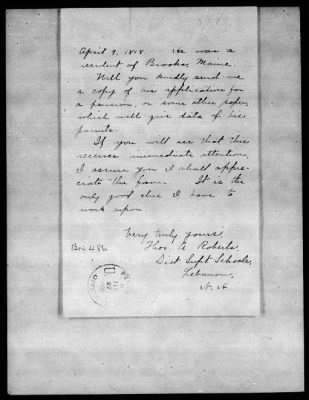 April 9, 1818   He was a
resident of Brooks, Maine.
Will you kindly send me
a copy of his application for
a pension, or some other paper
which will give data of his
family.
If you will see that this
receives immediate attention,
I assure you I shall appre-
ciate the favor. It is the
only good clue I have to
work upon.
Very truly yours,
Thos. A. Roberts.
Dist Supt Schools,
Lebanon,
N. H.
Box 486